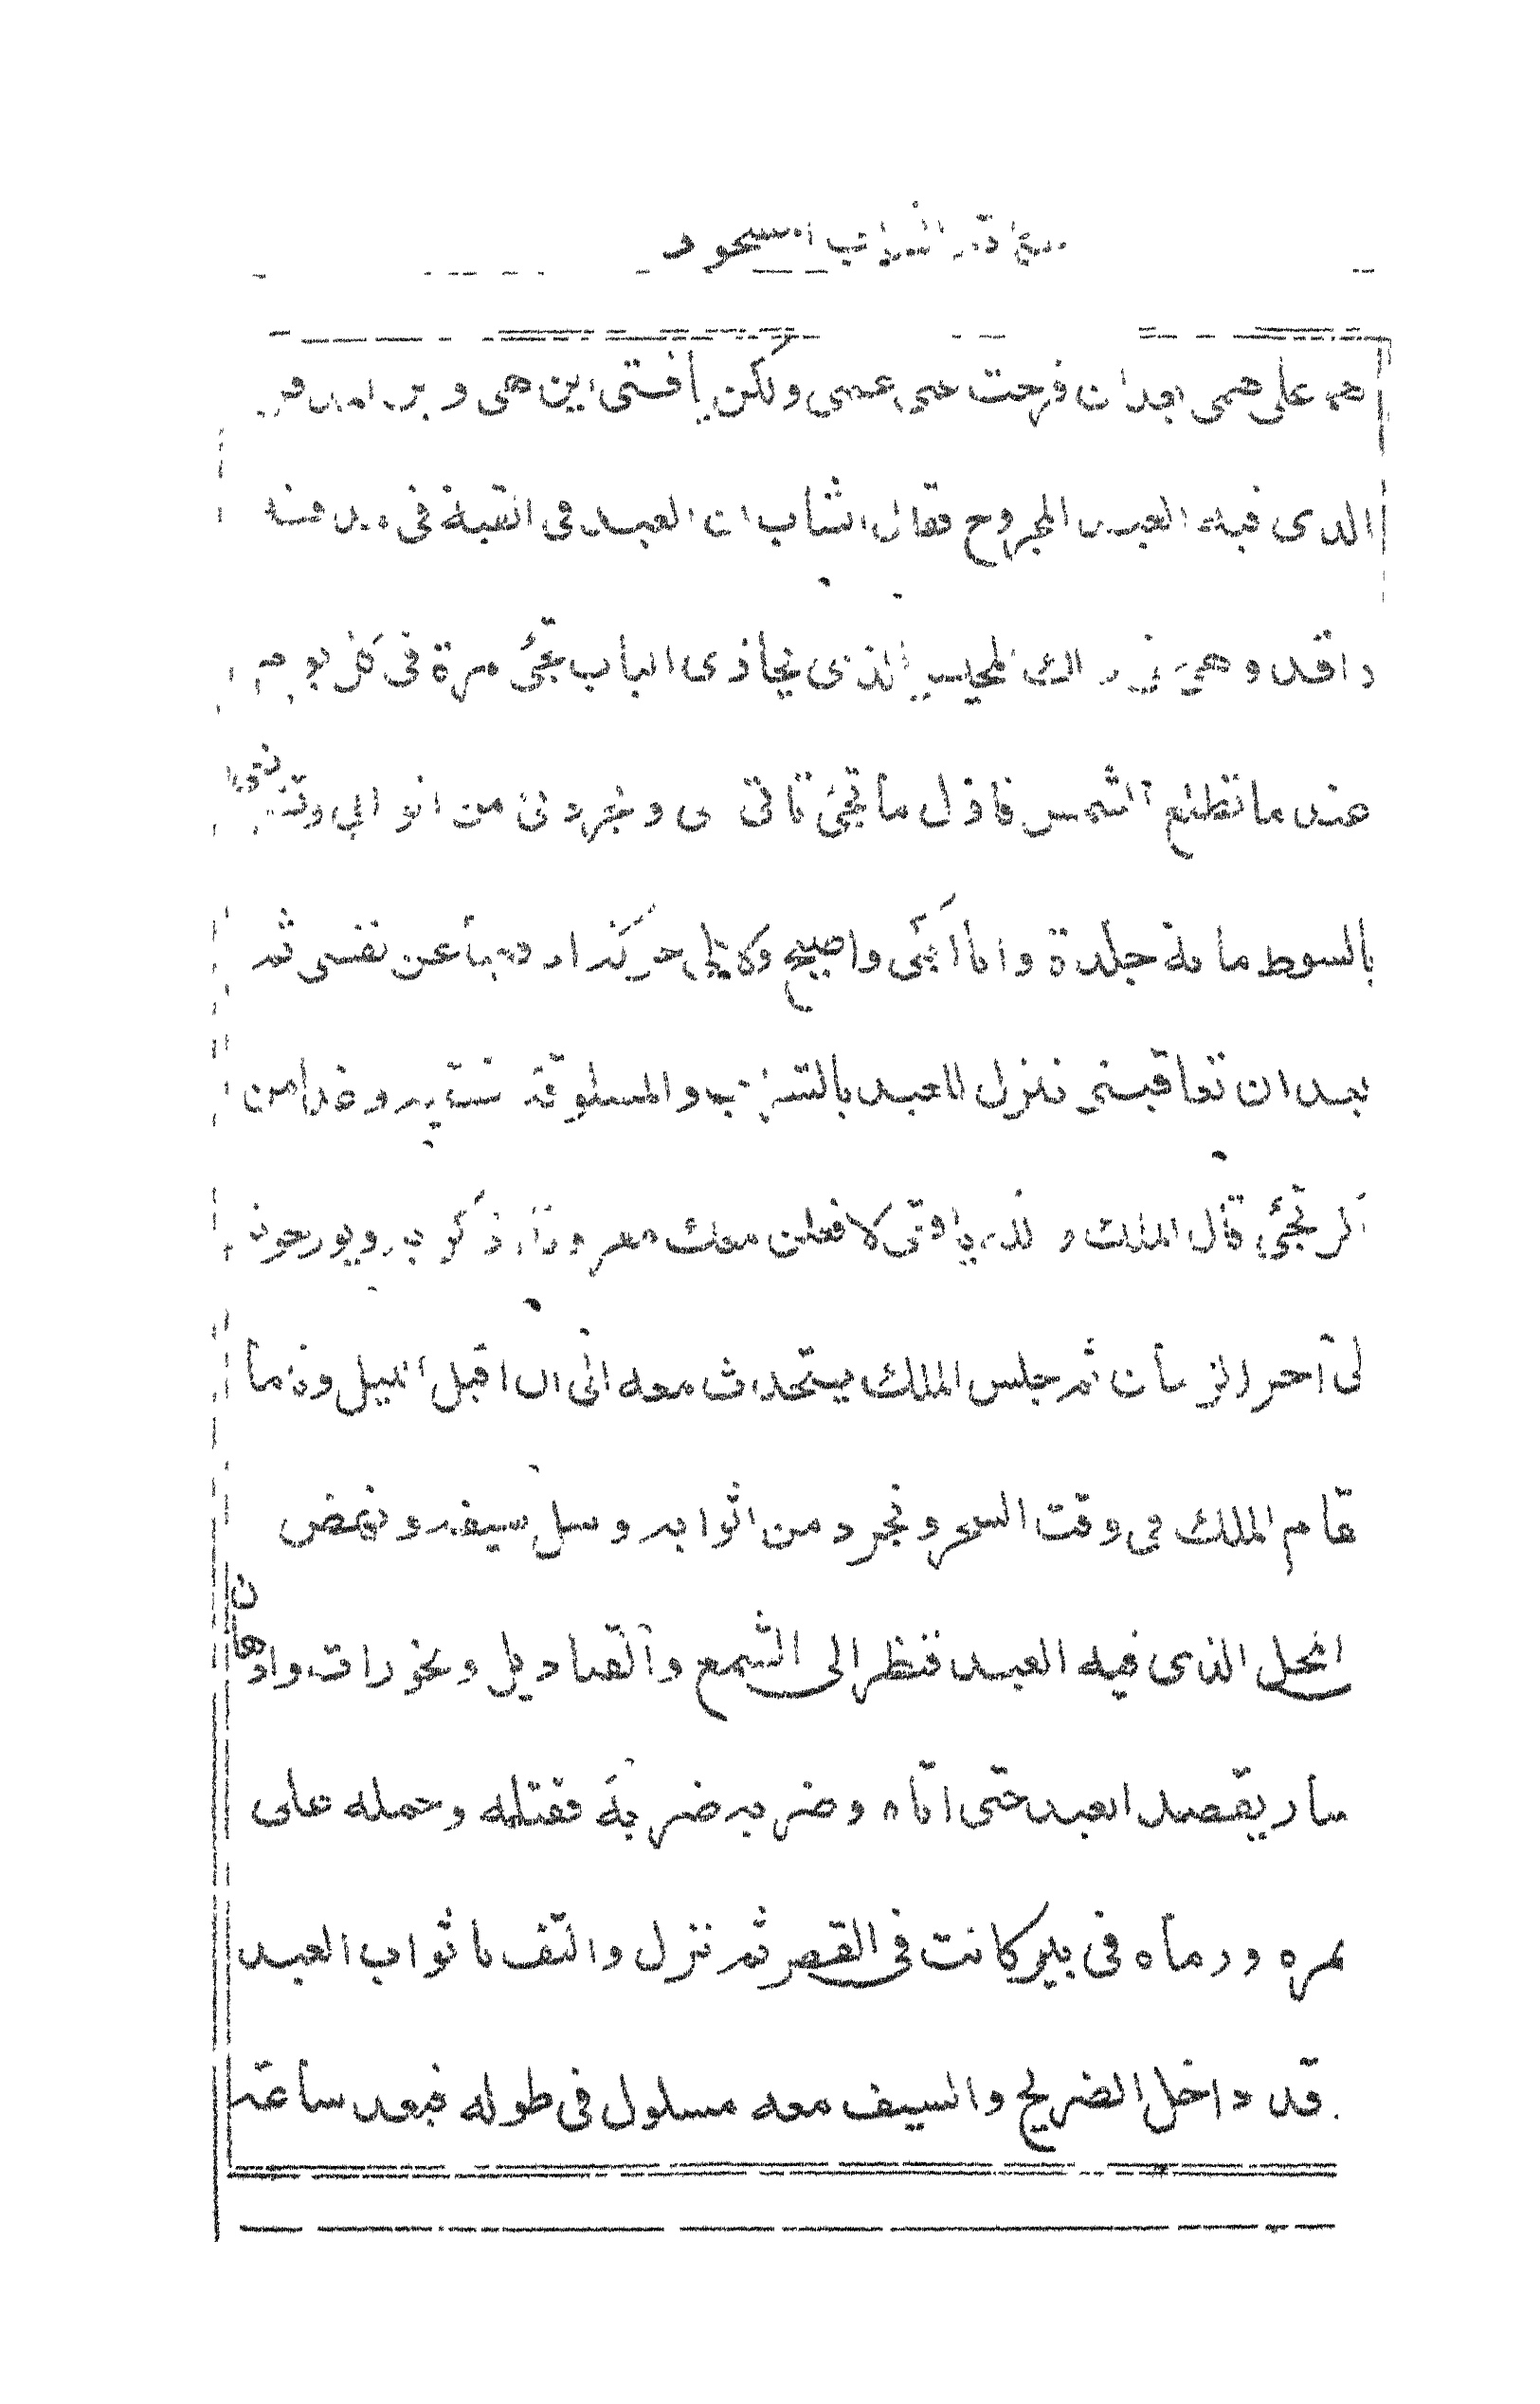 الشاب المسحور
هما على همى بعدان فرجت عنى غمى ولكن يافتى اين هى و
الذى فيه العبد المجروح فقال الشاب ان العبد فى القبة فى مدفنه
راقد وهى فى المجلس الذى يحاذى الباب تجئ مرة فى كل يوم
عند ما تطلع الشمس فاول ما تجئ تاتى لى وتجردنى من اثوابى وتضربنى
بالسوط ماية جلدة وانا ابكى واصيح ولا لى حركة ادفعها عن نفسى ثم
بعد ان تعاقبنى تنزل للعبد بالشراب والمسلوقة تسقيه وغدا من
تجئ قال الملك والله يافتى لافعلن معك معروفا اذكر به ويورخونه
لى آخر الزمان ثم جلس الملك يتحدث معه الى ان اقبل الليل وناما
قام الملك فى وقت السحر وتجرد من اثوابه وسل سيفه ونهض
المحل الذى فيه العبد فنظر الى الشمع والقناديل وبخورات وادهان
سار يقصد العبد حتى اتاه وضربه ضربة فقتله وحمله على
ظهره ورماه فى بير كانت فى القصر ثم نزل والتف باثواب العبد
رقد داخل الضريح والسيف معه مسلول فى طوله فبعد ساعة